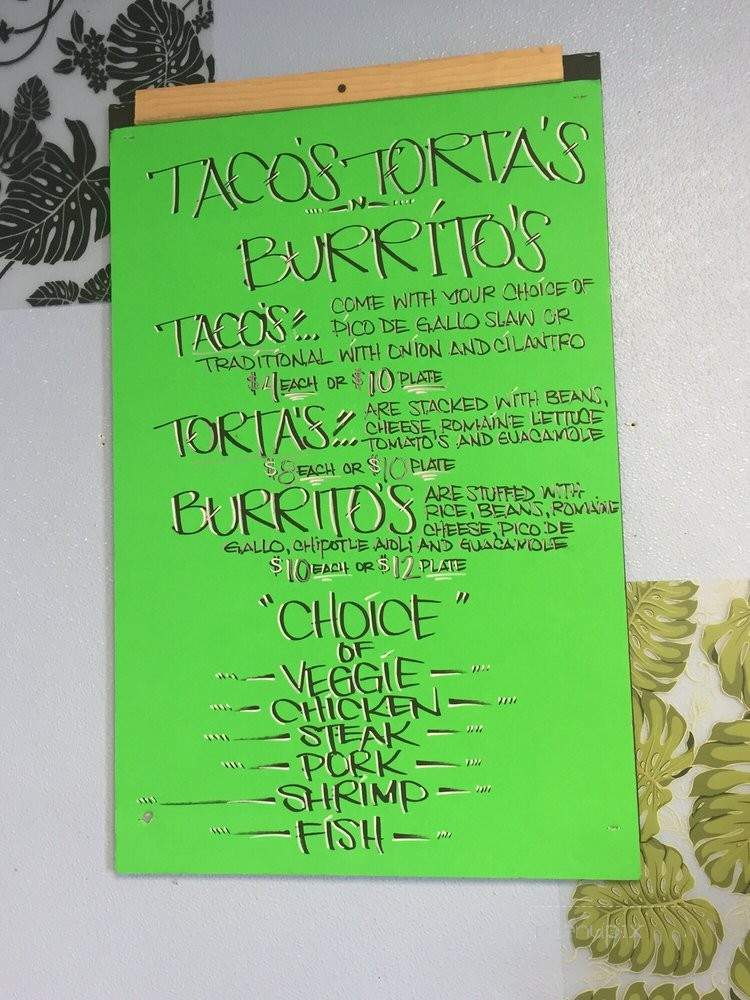 TACO'S TORTA'S
N
BURRÍTO'S
TACO'S!... COME WITH YOUR CHOICE OF
PICO DE GALLO SLAW OR
TRADITIONAL WITH ONION AND CILANTRO
$4 EACH OR $10 PLATE
TORTA'S!... ARE STACKED WITH BEANS,
CHEESE, ROMAINE LETTUCE
TOMATO'S AND GUACAMOLE
$8 EACH OR $10 PLATE
BURRITO'S ARE STUFFED WITH
RICE, BEANS, ROMAINE
CHEESE, PICO DE
GALLO, CHIPOTLE AIOLI AND GUACAMOLE
$10 EACH OR $12 PLATE
"CHOICE"
OF
VEGGIE
CHICKEN
STEAK
PORK
SHRIMP
FISH
menupix